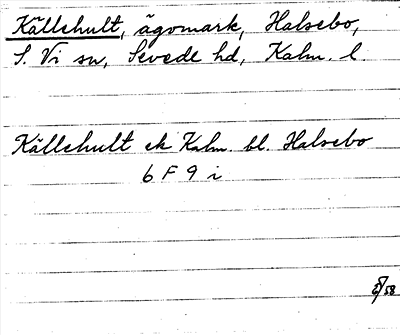 Källehult, ägomark, Halsebo,
S. Vi sn, Sevede hd, Kalm. l.
Källehult ek Kalm. bl. Halsebo
6 F 9 i